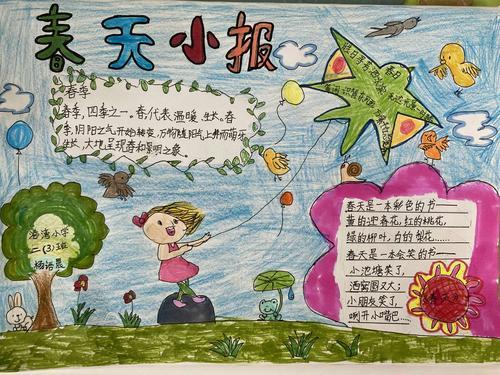 春天小报
春季
春季,四季之一。春,代表温暖、生长。春
季,阴阳之气开始转变,万物随阳气上升而萌芽
生长,大地呈现春和景明之象。
春日
小学
二(3)班
春天是一本彩色的书——
黄的迎春花,红的桃花,
绿的柳叶,白的梨花……
春天是一本会笑的书——
小池塘笑了,
酒窝圆又大;
小朋友笑了,
咧开小嘴巴……